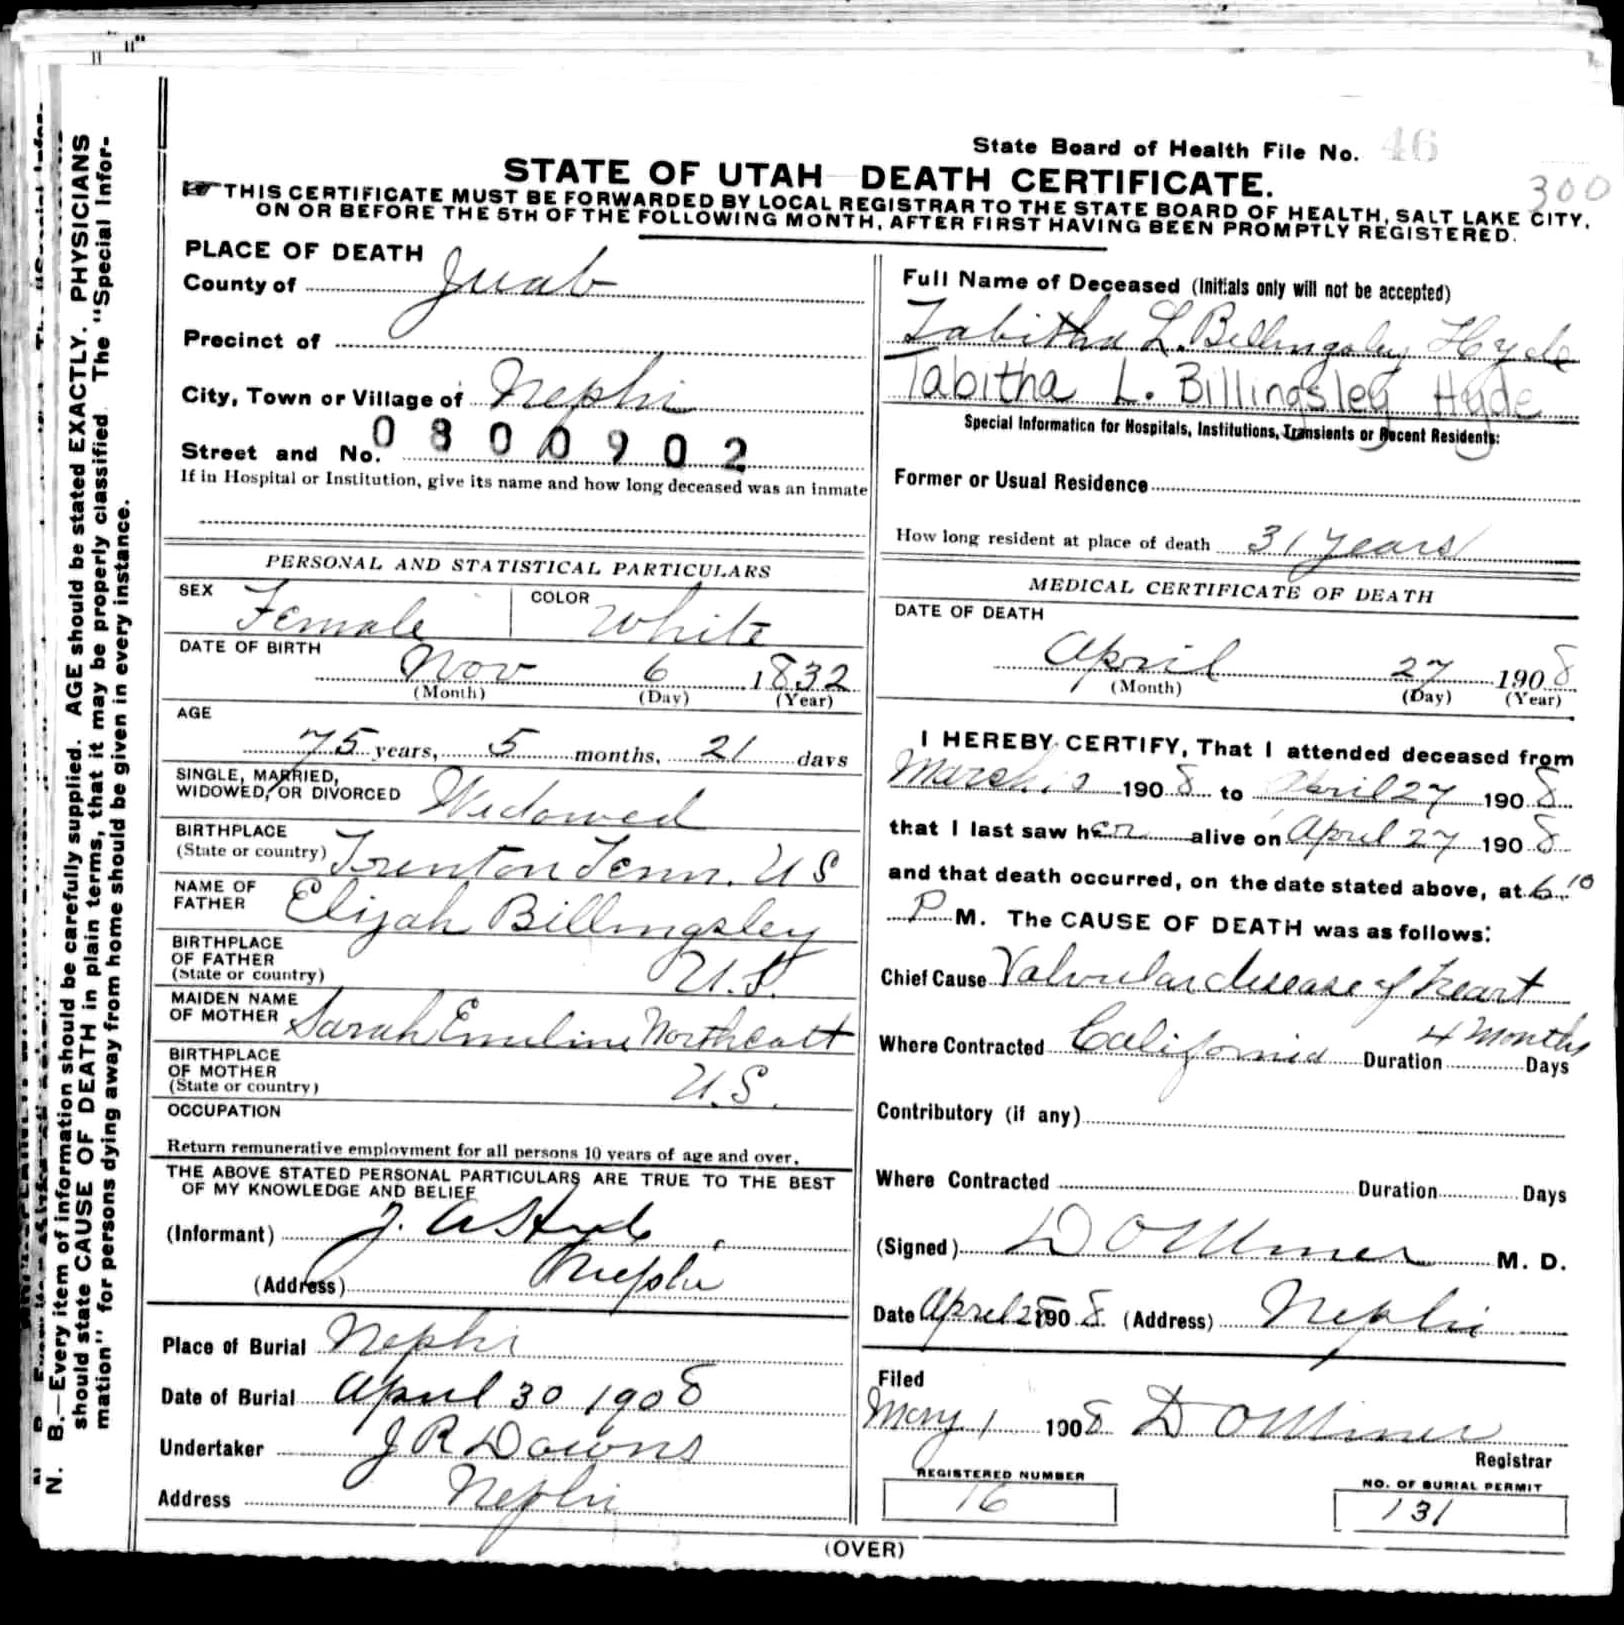 State Board of Health File No. 46
300
STATE OF UTAH DEATH CERTIFICATE.
THIS CERTIFICATE MUST BE FORWARDED BY LOCAL REGISTRAR TO THE STATE BOARD OF HEALTH, SALT LAKE CITY,
ON OR BEFORE THE 5TH OF THE FOLLOWING MONTH, AFTER FIRST HAVING BEEN PROMPTLY REGISTERED.
N. B.—Every item of information should be carefully supplied. AGE should be stated EXACTLY. PHYSICIANS
should state CAUSE OF DEATH in plain terms, that it may be properly classified. The "Special Infor-
mation" for persons dying away from home should be given in every instance.
PLACE OF DEATH
County of Juab
Precinct of
City, Town or Village of Nephi
Street and No. 0800902
If in Hospital or Institution, give its name and how long deceased was an inmate
PERSONAL AND STATISTICAL PARTICULARS
SEX Female COLOR White
DATE OF BIRTH
Nov 6 1832
(Month) (Day) (Year)
AGE
75 years, 5 months, 21 days
SINGLE, MARRIED,
WIDOWED, OR DIVORCED Widowed
BIRTHPLACE
(State or country) Trenton Tenn. U S
NAME OF
FATHER Elijah Billingsley
BIRTHPLACE
OF FATHER
(State or country) U.S.
MAIDEN NAME
OF MOTHER Sarah Emeline Northcott
BIRTHPLACE
OF MOTHER
(State or country) U.S.
OCCUPATION
Return remunerative employment for all persons 10 years of age and over.
THE ABOVE STATED PERSONAL PARTICULARS ARE TRUE TO THE BEST
OF MY KNOWLEDGE AND BELIEF
(Informant) J. A Hyde
(Address) Nephi
Place of Burial Nephi
Date of Burial April 30 1908
Undertaker J R Downs
Address Nephi
Full Name of Deceased (Initials only will not be accepted)
Tabitha L. Billingsley Hyde
Tabitha L. Billingsley Hyde
Special Information for Hospitals, Institutions, Transients or Recent Residents:
Former or Usual Residence
How long resident at place of death 31 years
MEDICAL CERTIFICATE OF DEATH
DATE OF DEATH
April 27 1908
(Month) (Day) (Year)
I HEREBY CERTIFY, That I attended deceased from
March 1908 to April 27 1908
that I last saw her alive on April 27 1908
and that death occurred, on the date stated above, at 6.10
P M. The CAUSE OF DEATH was as follows:
Chief Cause Valvular disease of heart
Where Contracted California Duration 4 Months Days
Contributory (if any)
Where Contracted Duration Days
(Signed) D O Miner M. D.
Date April 28 1908 (Address) Nephi
Filed
May 1 1908 D O Miner
Registrar
REGISTERED NUMBER
16
NO. OF BURIAL PERMIT
131
(OVER)